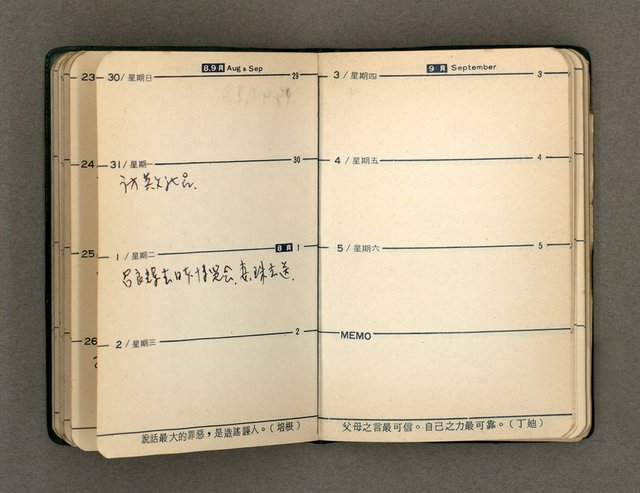 8.9月 Aug & Sep
23 30/星期日 29
24 31/星期一 30
訪英文
25 1/星期二 8月 1
呂良輝去日本博覽会,惠珠去送.
26 2/星期三 2
說話最大的罪惡，是造謠誣人。（培根）
9月 September
3/星期四 3
4/星期五 4
5/星期六 5
MEMO
父母之言最可信。自己之力最可靠。（丁廸）